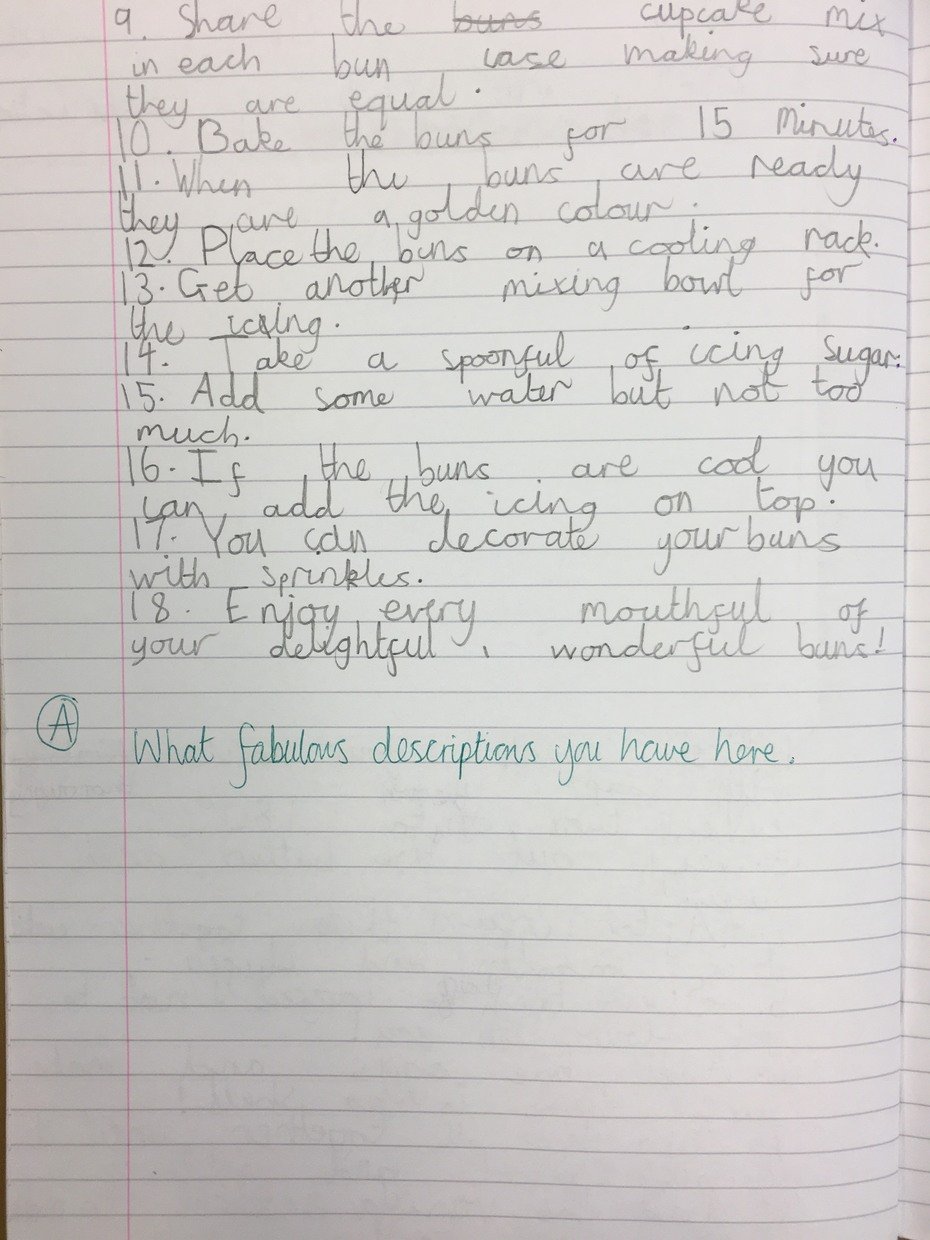 9. Share the buns cupcake mix
in each bun case making sure
they are equal.
10. Bake the buns for 15 minutes.
11. When the buns are ready
they are a golden colour.
12. Place the buns on a cooling rack.
13. Get another mixing bowl for
the icing.
14. Take a spoonful of icing sugar.
15. Add some water but not too
much.
16. If the buns are cool you
can add the icing on top.
17. You can decorate your buns
with sprinkles.
18. Enjoy every mouthful of
your delightful, wonderful buns!
A What fabulous descriptions you have here.